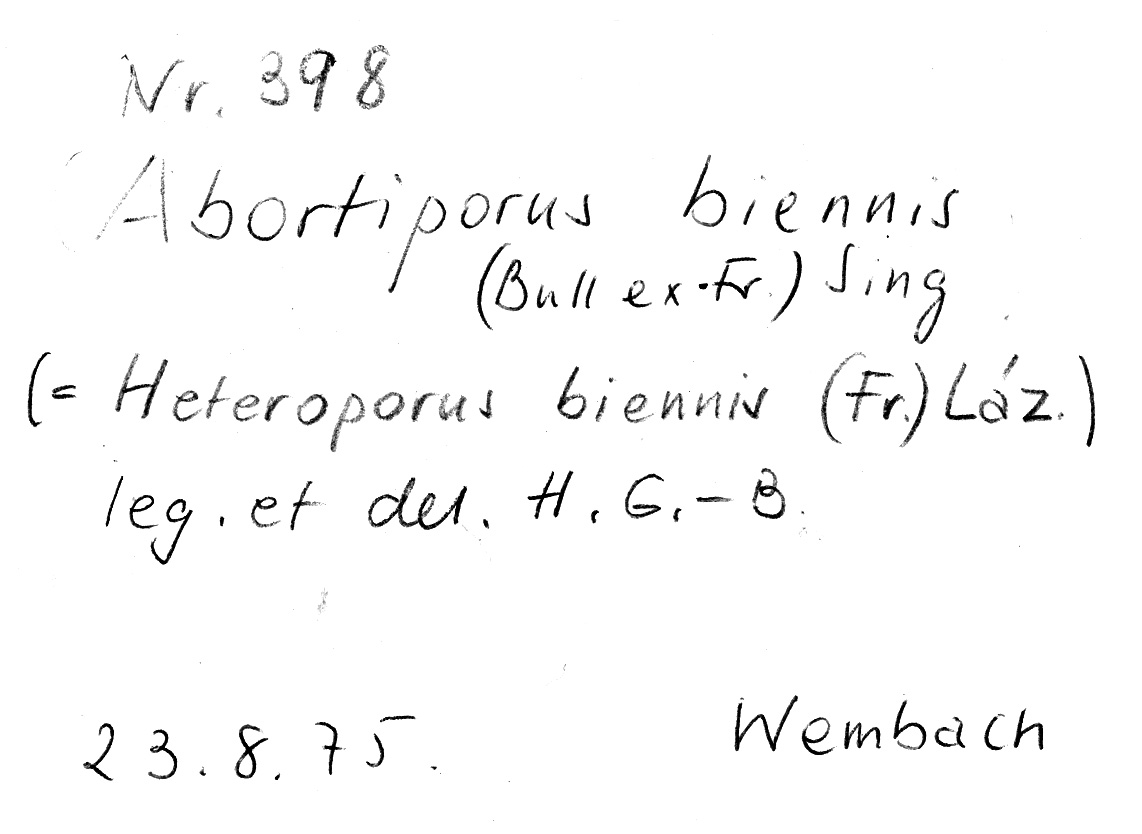 Nr. 398
Abortiporus biennis
(Bull ex. Fr.) Sing
(= Heteroporus biennis (Fr.) Láz.)
leg. et det. H. G. - B.
23.8.75.
Wembach